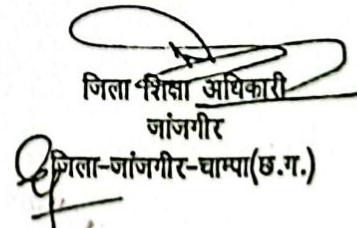 जिला शिक्षा अधिकारी
जांजगीर
जिला-जांजगीर-चाम्पा(छ.ग.)